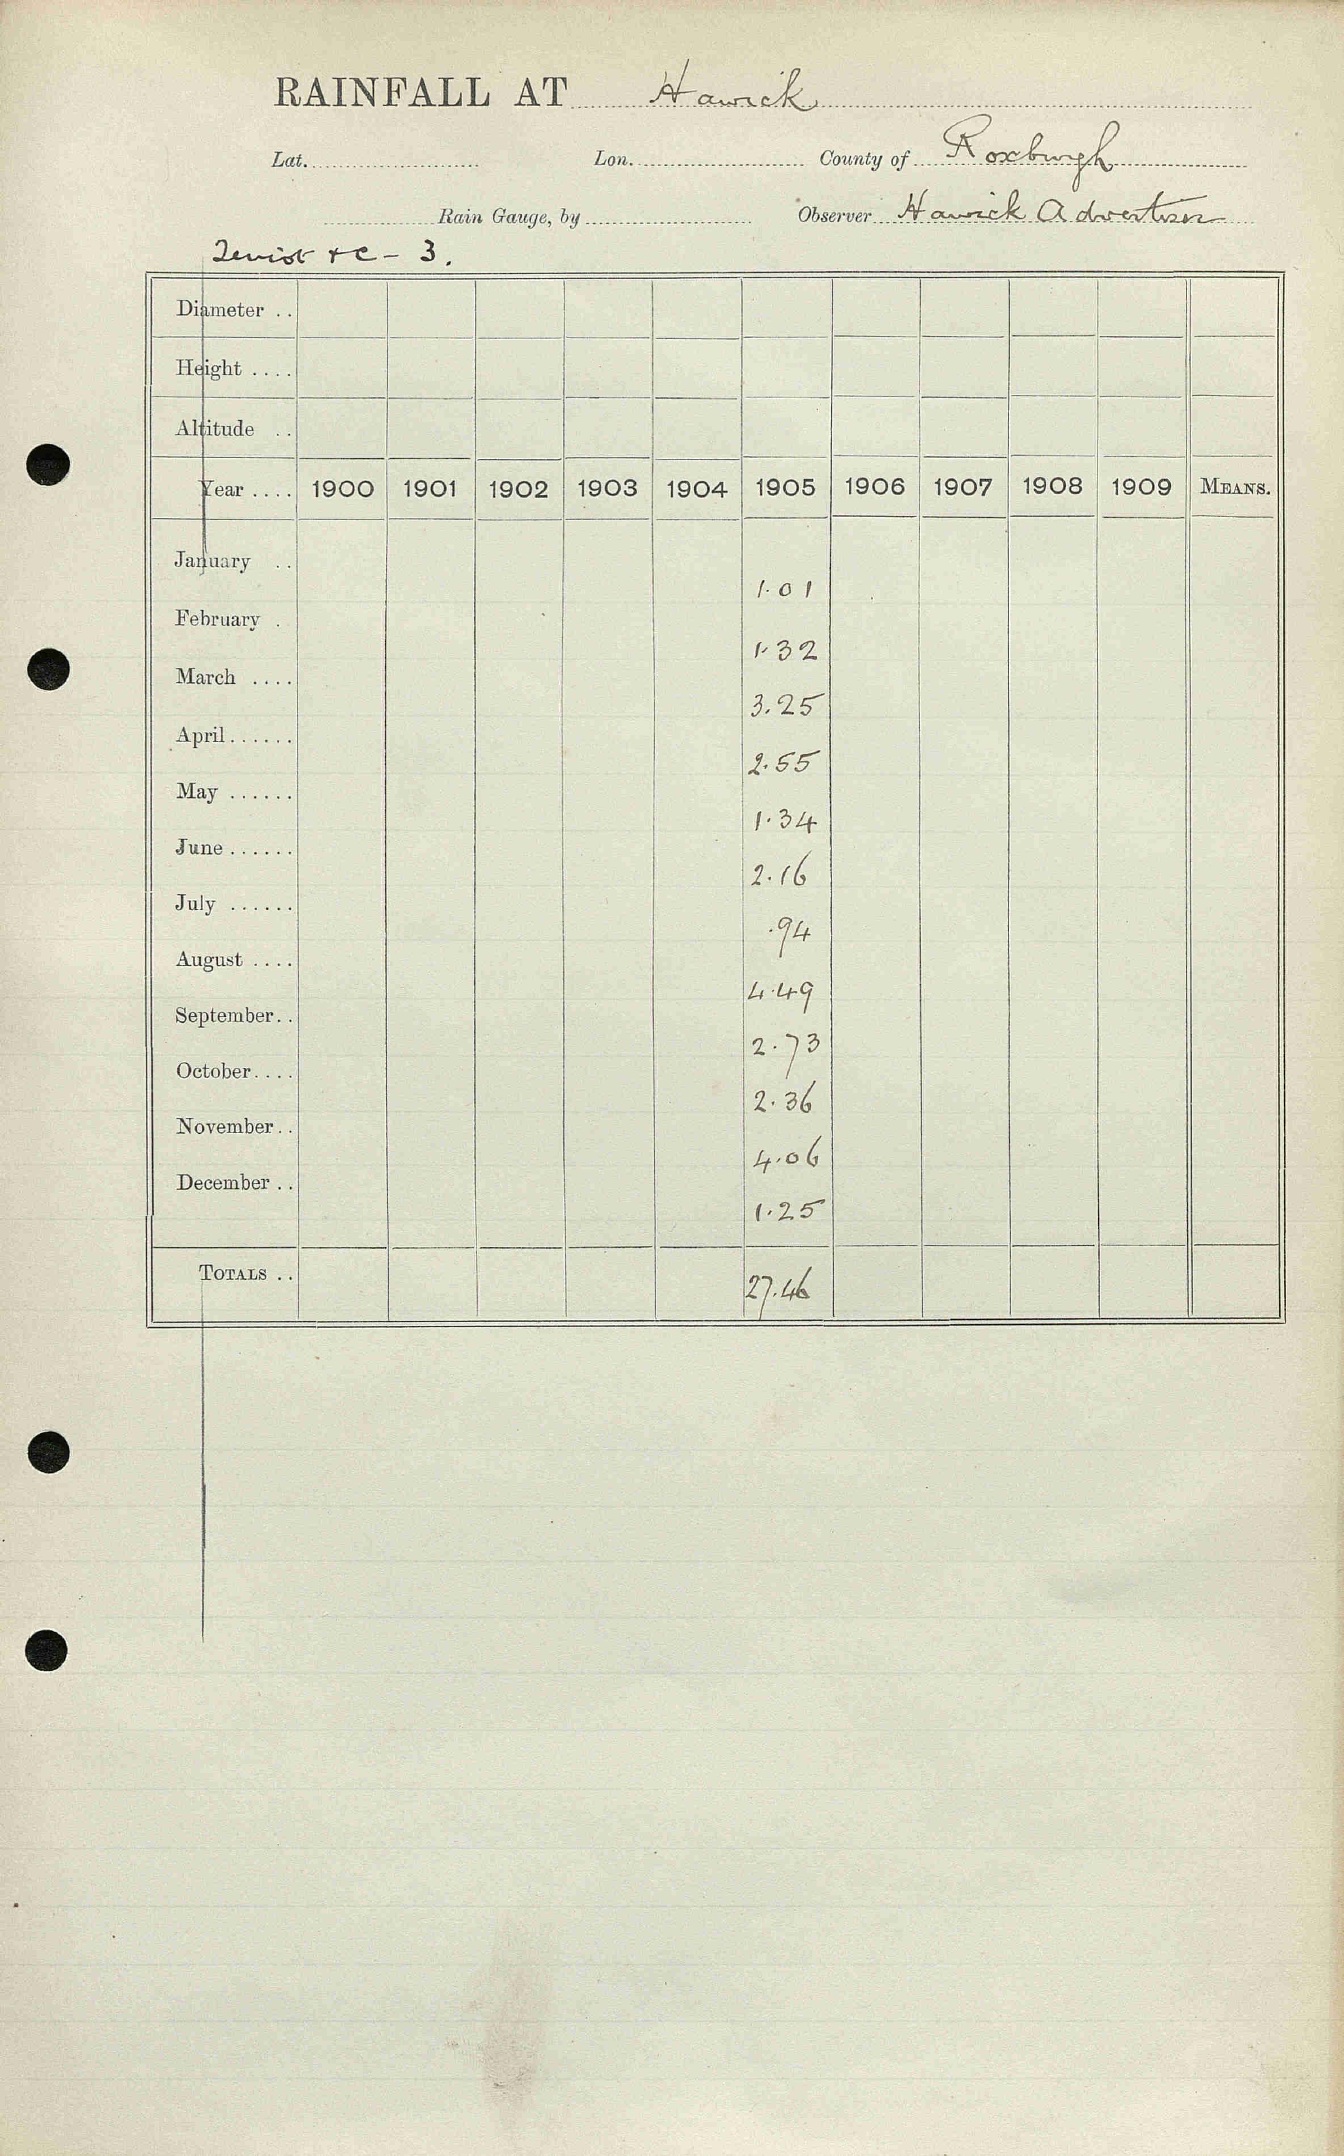 RAINFALL AT Hawick
Lat. Lon. County of Roxburgh
Rain Gauge, by Observer Hawick Advertiser
Teviot &c - 3.
Diameter ..
Height ....
Altitude ..
Year .... 1900 1901 1902 1903 1904 1905 1906 1907 1908 1909 MEANS.
January .. 1.01
February . 1.32
March .... 3.25
April...... 2.55
May ...... 1.34
June...... 2.16
July ...... .94
August .... 4.49
September.. 2.73
October.... 2.36
November.. 4.06
December .. 1.25
TOTALS .. 27.46